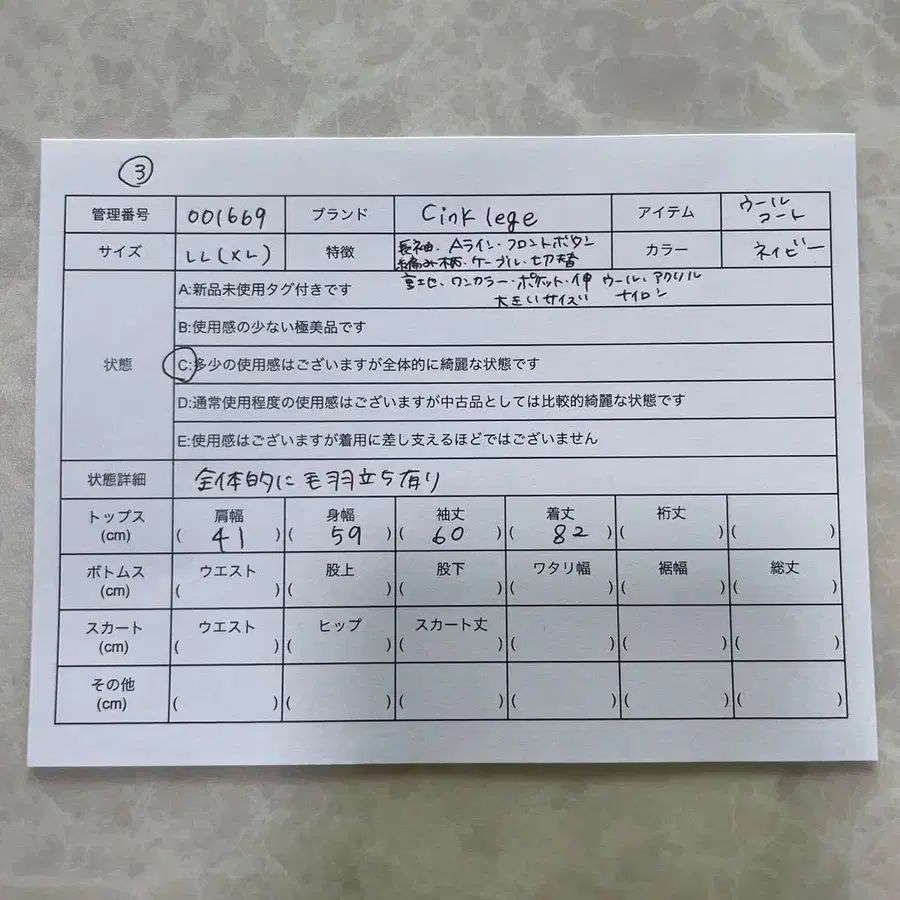 ③
管理番号 001669 ブランド Cink lege アイテム ウール
コート
サイズ LL(XL) 特徴 長袖・Aライン・フロントボタン
編み柄・ケーブル・切替 カラー ネイビー
重ね地・ワンカラー・ポケット・伸 ウール、アクリル
大きいサイズ ナイロン
状態
A:新品未使用タグ付きです
B:使用感の少ない極美品です
C:多少の使用感はございますが全体的に綺麗な状態です
D:通常使用程度の使用感はございますが中古品としては比較的綺麗な状態です
E:使用感はございますが着用に差し支えるほどではございません
状態詳細 全体的に毛羽立ち有り
トップス 肩幅 身幅 袖丈 着丈 裄丈
(cm) ( 41 ) ( 59 ) ( 60 ) ( 82 ) ( ) ( )
ボトムス ウエスト 股上 股下 ワタリ幅 裾幅 総丈
(cm) ( ) ( ) ( ) ( ) ( ) ( )
スカート ウエスト ヒップ スカート丈
(cm) ( ) ( ) ( ) ( ) ( ) ( )
その他
(cm) ( ) ( ) ( ) ( ) ( ) ( )